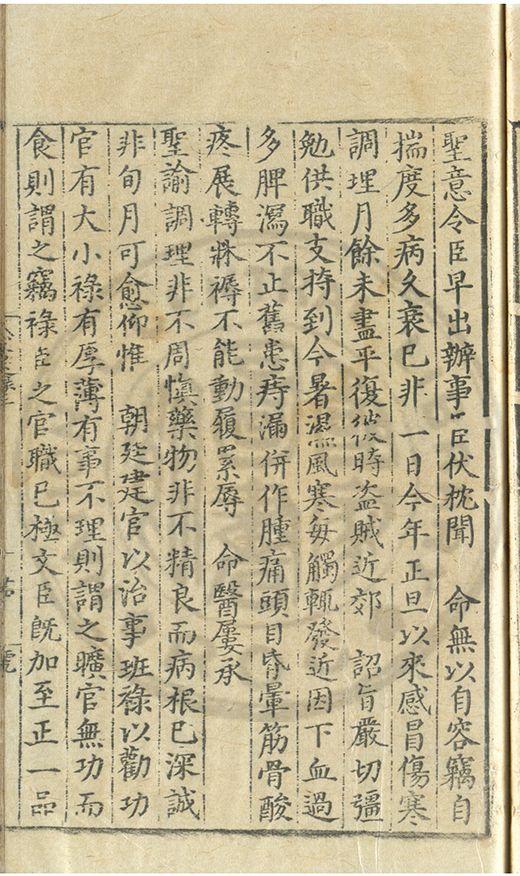 聖意令臣早出辦事臣伏枕聞　命無以自容竊自
揣度多病久衰已非一日今年正旦以來感冒傷寒
調理月餘未盡平復彼時盗賊近郊　詔旨嚴切彊
勉供職支持到今暑濕風寒每觸輒發近因下血過
多脾瀉不止舊患痔漏併作腫痛頭目昏暈筋骨酸
疼展轉牀褥不能動履累辱　命醫屢承
聖諭調理非不周慎藥物非不精良而病根已深誠
非旬月可愈仰惟　朝廷建官以治事班祿以勸功
官有大小祿有厚薄有事不理則謂之曠官無功而
食則謂之竊祿臣之官職已極文臣旣加至正一品